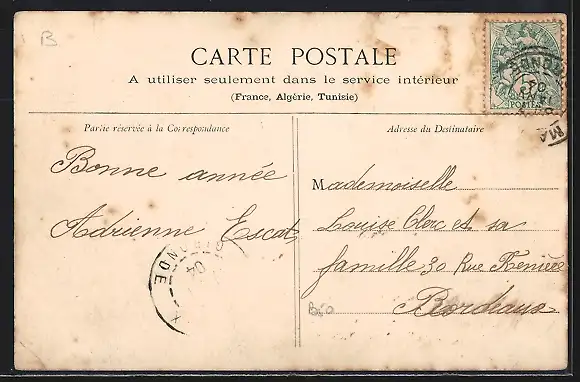 B
CARTE POSTALE
A utiliser seulement dans le service intérieur
(France, Algérie, Tunisie)
Partie réservée à la Correspondance
Adresse du Destinataire
Bonne année
Adrienne Escat
Mademoiselle
Louise Clerc et sa
famille 30 Rue
Bordeaux
GIRONDE
04
POSTES